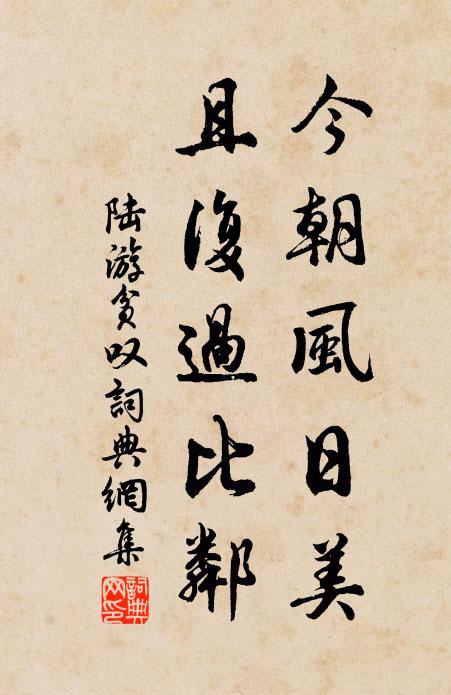 今朝風日美
且復過比鄰
陆游貧叹詞典網集
詞典網印